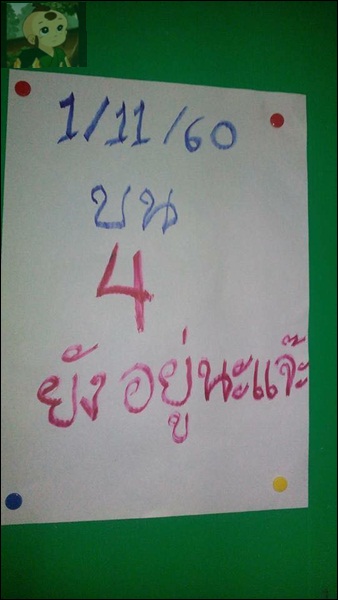 1/11/60
บน
4
ยังอยู่นะแจ๊ะ